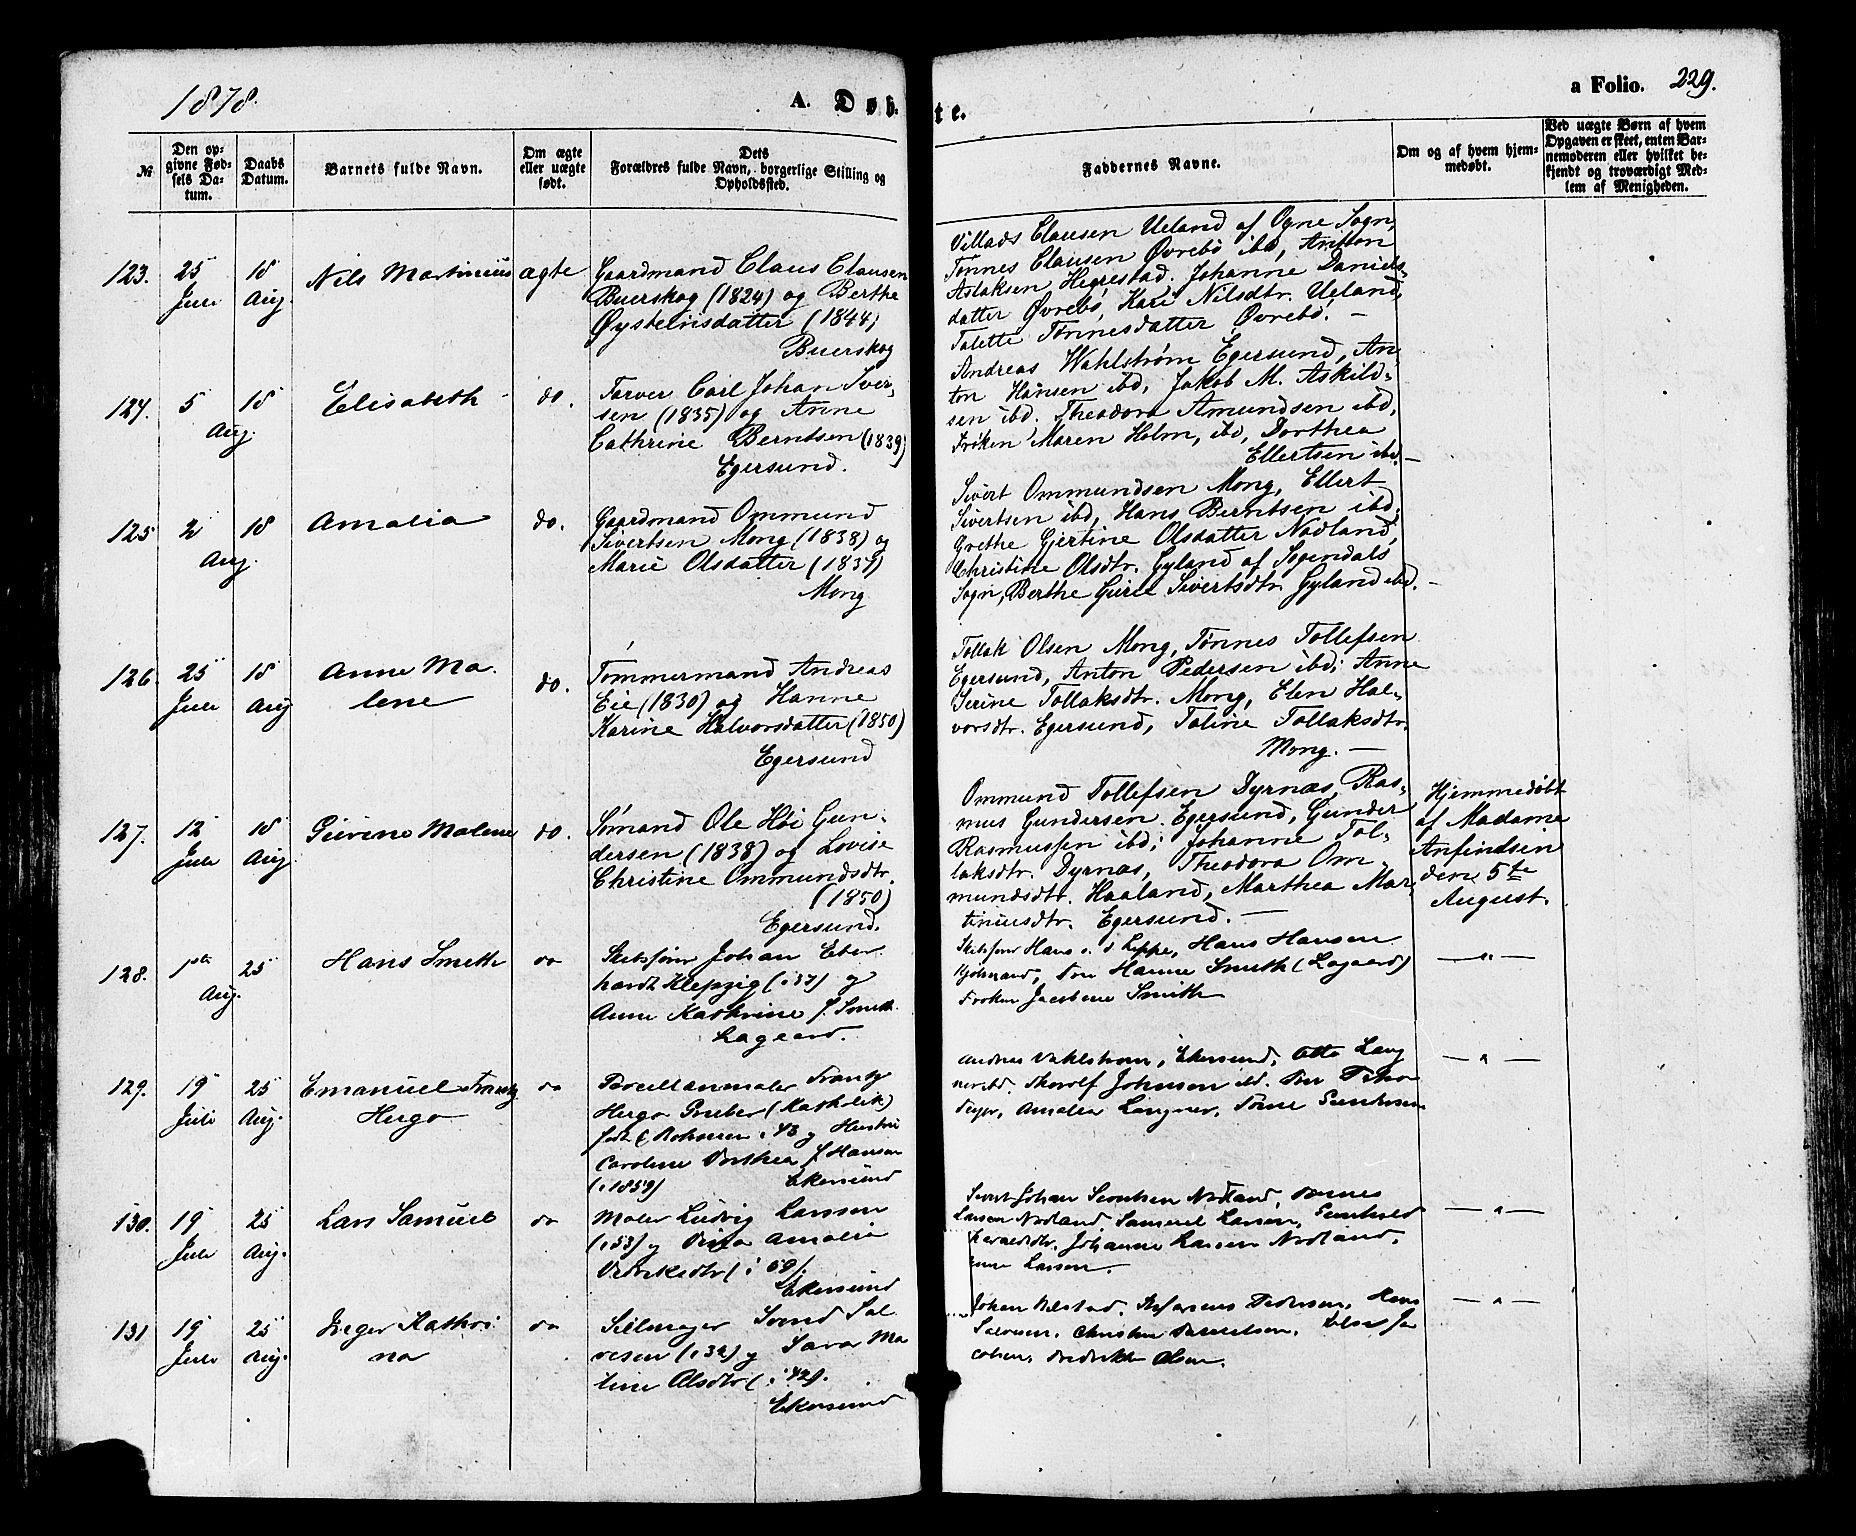 1878.
A. Døb-
te.
a Folio. 229.
№
Den op-
givne Fød-
sels Da-
tum.
Daabs
Datum.
Barnets fulde Navn.
Om ægte
eller uægte
født.
Dets
Forældres fulde Navn, borgerlige Stilling og
Opholdssted.
Faddernes Navne.
Om og af hvem hjem-
medøbt.
Ved uægte Børn af hvem
Opgaven er skeet, enten Bar-
nemoderen eller hvilket be-
kjendt og troværdigt Med-
lem af Menigheden.
123. 25 Juli
18 Aug.
Nils Martinius
ægte
Gaardmand Claus Clausen
Buerskog (1824) og Berthe
Øysteinsdatter (1844)
Buerskog
Villads Clausen Ueland af Ogne Sogn,
Tønnes Clausen Øvrebø ibd, Anton
Aslaksen Hegrestad. Johanne Daniels-
datter Øvrebø, Kari Nilsdtr. Ueland,
Talette Tønnesdatter Øvrebø. —
124. 5 Aug.
18
Elisabeth
do.
Farver Carl Johan Iver-
sen (1835) og Anne
Cathrine Berntsen (1839)
Egersund.
Andreas Wahlstrøm Egersund, An-
ton Hansen ibd, Jakob M. Askild-
sen ibd. Theodora Amundsen ibd,
Frøken Maren Holm, ibd, Dorthea
Ellertsen ibd. —
125 2 Aug.
18
Amalia
do.
Gaardmand Ommund
Sivertsen Mong (1838) og
Marie Olsdatter (1837)
Mong
Sivert Ommundsen Mong, Ellert
Sivertsen ibd, Hans Berntsen ibd,
Grethe Gjertine Olsdatter Nodland,
Christine Olsdtr. Gyland af Sogendals
Sogn, Berthe Gurie Sivertsdtr. Gyland ibd. —
126. 25 Juli
18 Aug
Anne Ma-
lene
do.
Tømmermand Andreas
Eie (1830) og Hanne
Karine Halvorsdatter (1850)
Egersund
Tollak Olsen Mong, Tønnes Tollefsen
Egersund, Anton Pedersen ibd; Anne
Serine Tollaksdtr. Mong, Elen Hal-
vorsdtr. Egersund, Taline Tollaksdtr.
Mong. —
127. 12 Juli
18 Aug.
Sivine Malene
do.
Sømand Ole Høi Gun-
dersen (1838) og Lovise
Christine Ommundsdtr.
(1850)
Egersund.
Ommund Tollefsen Dyrnæs, Ras-
mus Gundersen. Egersund, Gunder
Rasmussen ibd; Johanne Tol-
laksdtr. Dyrnæs, Theodora Om-
mundsdtr. Haaland, Marthea Mar-
tiniusdtr. Egersund. —
Hjemmedøbt
af Madame
Anfindsen
den 5te
August.
128. 1ste Aug.
25
Hans Smith
do
Skibsfører Johan Eber-
hardt Klepzig (: 37) og
Anne Kathrine f. Smith
Lagaard.
Skibsfører Hans Hansen
Hanne Smith (Lagaard)
Frøken Jacobine Smith
— " —
129. 19 Juli
25 Aug.
Emanuel Frantz
Hugo
do
Porcellanmaler Frantz
Hugo Gruber (Katholik)
født i Bøhmen : 43 og Hustru
Caroline Dorthea f. Hansen
(: 1859) Ekersund
Andreas Vahlstrom, Ekersund, Otto Lang
ner ibd. Thorolf Johnsen ibd.
Amalia Langner,
— " —
130. 19 Juli
25 Aug.
Lars Samuel
do
Maler Ludvig Larsen
(: 53) og Amalia
Ekersund
Sivert Johan Nodland,
Larsen Nodland. Samuel Larsen, Gunhild
Johanne Larsen Nodland,
Larsen.
— " —
131 19 Juli
25 Aug.
Inger Kathri-
na
do
Svend Sal-
vesen (: 39) og Sara Ma
line Olsdtr (: 42).
Ekersund
Johan Pedersen, Hans
Salvesen. Christian
Fredrikke Olsen.
— " —